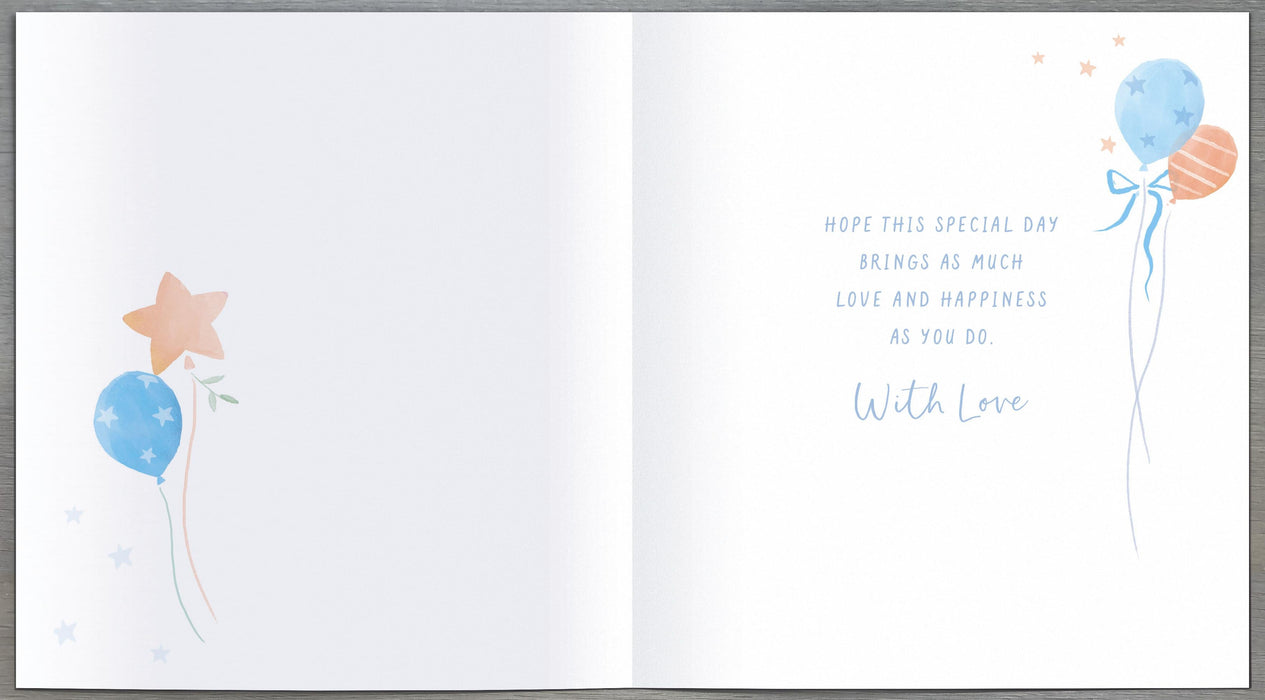 HOPE THIS SPECIAL DAY
BRINGS AS MUCH
LOVE AND HAPPINESS
AS YOU DO.
With Love